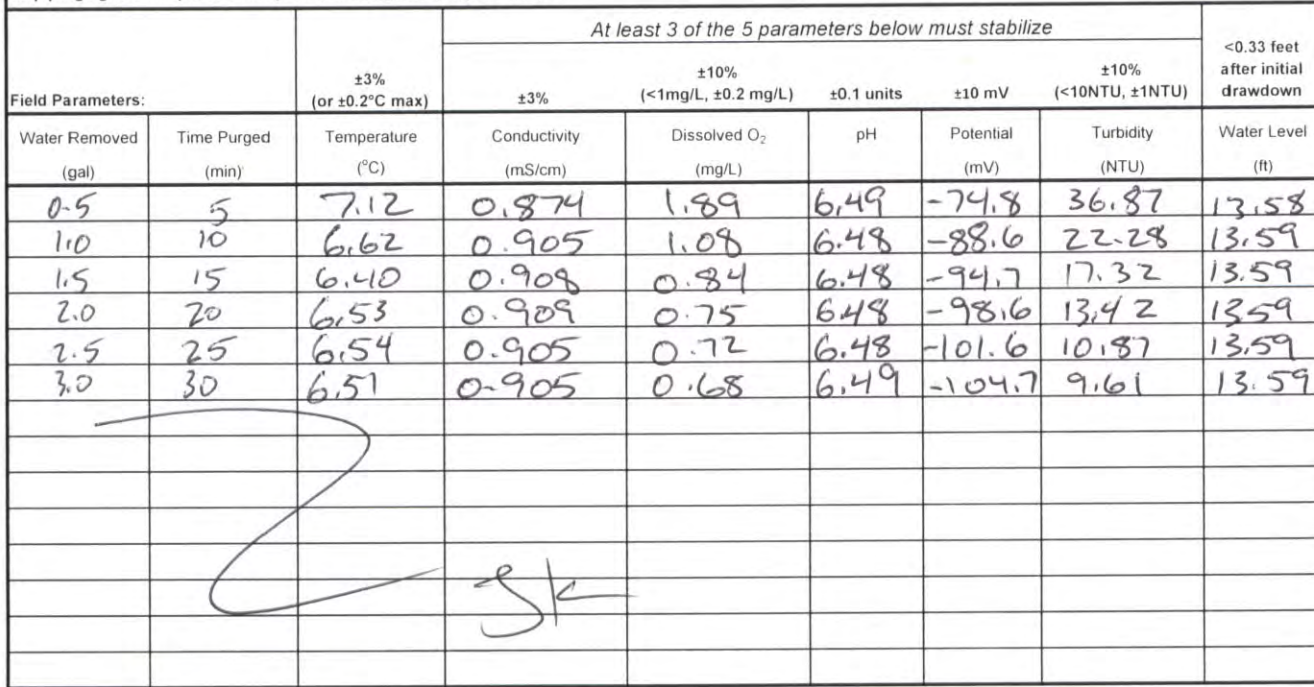 At least 3 of the 5 parameters below must stabilize
Field Parameters: ±3% (or ±0.2°C max) ±3% ±10% (<1mg/L, ±0.2 mg/L) ±0.1 units ±10 mV ±10% (<10NTU, ±1NTU) <0.33 feet after initial drawdown
Water Removed (gal) Time Purged (min) Temperature (°C) Conductivity (mS/cm) Dissolved O₂ (mg/L) pH Potential (mV) Turbidity (NTU) Water Level (ft)
0.5 5 7.12 0.874 1.89 6.49 -74.8 36.87 13.58
1.0 10 6.62 0.905 1.08 6.48 -88.6 22.28 13.59
1.5 15 6.40 0.908 0.84 6.48 -94.7 17.32 13.59
2.0 20 6.53 0.909 0.75 6.48 -98.6 13.42 13.59
2.5 25 6.54 0.905 0.72 6.48 -101.6 10.87 13.59
3.0 30 6.51 0.905 0.68 6.49 -104.7 9.61 13.59